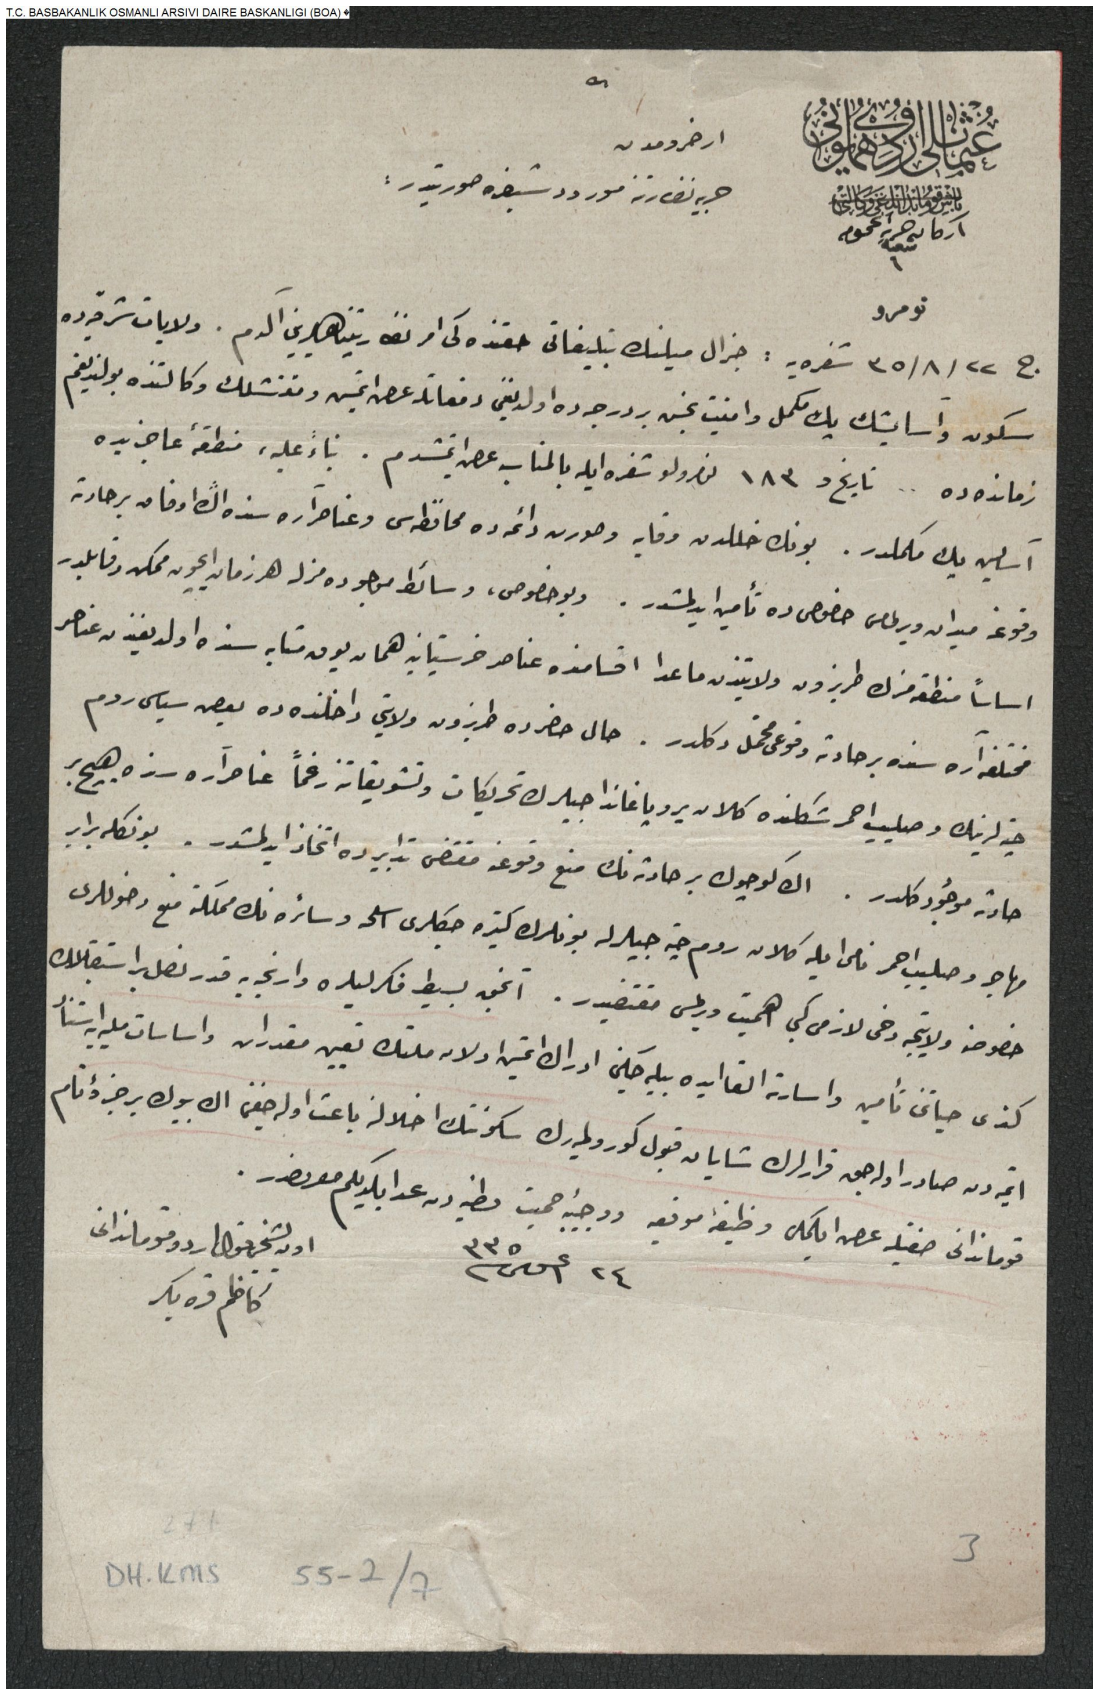 T.C. BASBAKANLIK OSMANLI ARSIVI DAIRE BASKANLIGI (BOA)
عثمانلی اردوی همایونی
باش قوماندانلغی وکالتی
ارکان حربیهٔ عمومیه
شعبه
٦
نومرو
ارضرومدن
حربیه نظارتنه مورود شیفره صورتیدر :
ج ٢٢/٨/٣٥ شفره‌یه : جنرال میلنك تبلیغاتی حقنده کی امر نظارتپناهیلرینی آلدم . ولایات شرقیه‌ده
سکون و آسایشك پك مکمل و امنیت بخش بر درجه‌ده اولدیغنی دفعاتله عرض ایتمش و مفتشلك وکالتنده بولندیغم
زمانده‌ده .. تاریخ و ١٨٣ نومرولو شفره ایله بالمناسبه عرض ایتمشدم . بناءً علیه ، منطقهٔ عاجزیده
آسایش پك مکملدر . بونك خللدن وقایه و صورت دائمه‌ده محافظه‌سی و عناصر آره سنده اڭ اوفاق بر حادثه
وقوعنه میدان ویرلمامسی خصوصی ده تأمین ایدلمشدر . وبو خصوص ، وسائط موجوده‌مزله هر زمان ایچون ممکن و قابلدر
اساساً منطقه‌مزك طربزون ولایتندن ماعدا اقسامنده عناصر خرستیانیه همان یوق مثابه سنده اولدیغندن عناصر
مختلفه آره سنده بر حادثه وقوعی محتمل دکلدر . حال حاضرده طربزون ولایتی داخلنده‌ده بعض سیاسی روم
چته لرینك و صلیب احمر شکلنده کلان پروپاغانداجیلرك تحریکات و تشویقاتنه رغماً عناصر آره سنده هیچ بر
حادثه موجود دکلدر . اڭ کوچوك بر حادثه‌نك منع وقوعنه مقتضی تدابیرده اتخاذ ایدلمشدر . بونکله برابر
مهاجر و صلیب احمر نامی ایله کلان روم چته جیلرله بونلرك کتیره جکلری اسلحه و سائره‌نك مملکته منع دخوللری
خصوصنه ولایتجه دخی لازمی کبی اهمیت ویرلمسی مقتضیدر . آنجق بسیط فکرلیلره وارنجیه قدر نصل بر استقبالك
کندی حیاتنی تأمین و اسارته القا ایده بیله جکنی ادراك ایتمش اولان ملتك تعیین مقدراتی و اساسات ملیه‌یه استناداً
ایتمه‌دن صادر اوله‌جق قرارلرك شایان قبول کورولمیه‌رك سکونتك اخلالنه باعث اوله‌جغنی اڭ بیوك بر جزؤتام
قوماندانی صفتیله عرض ایلمکی وظیفهٔ موقعیه و وجیبهٔ حمیت وطنیه‌دن عد ایلدیکم معروضدر .
٢٤ اغستوس ٣٣٥
اون بشنجی قول اردو قوماندانی
کاظم قره بکر
DH.KMS 55-2/7
3